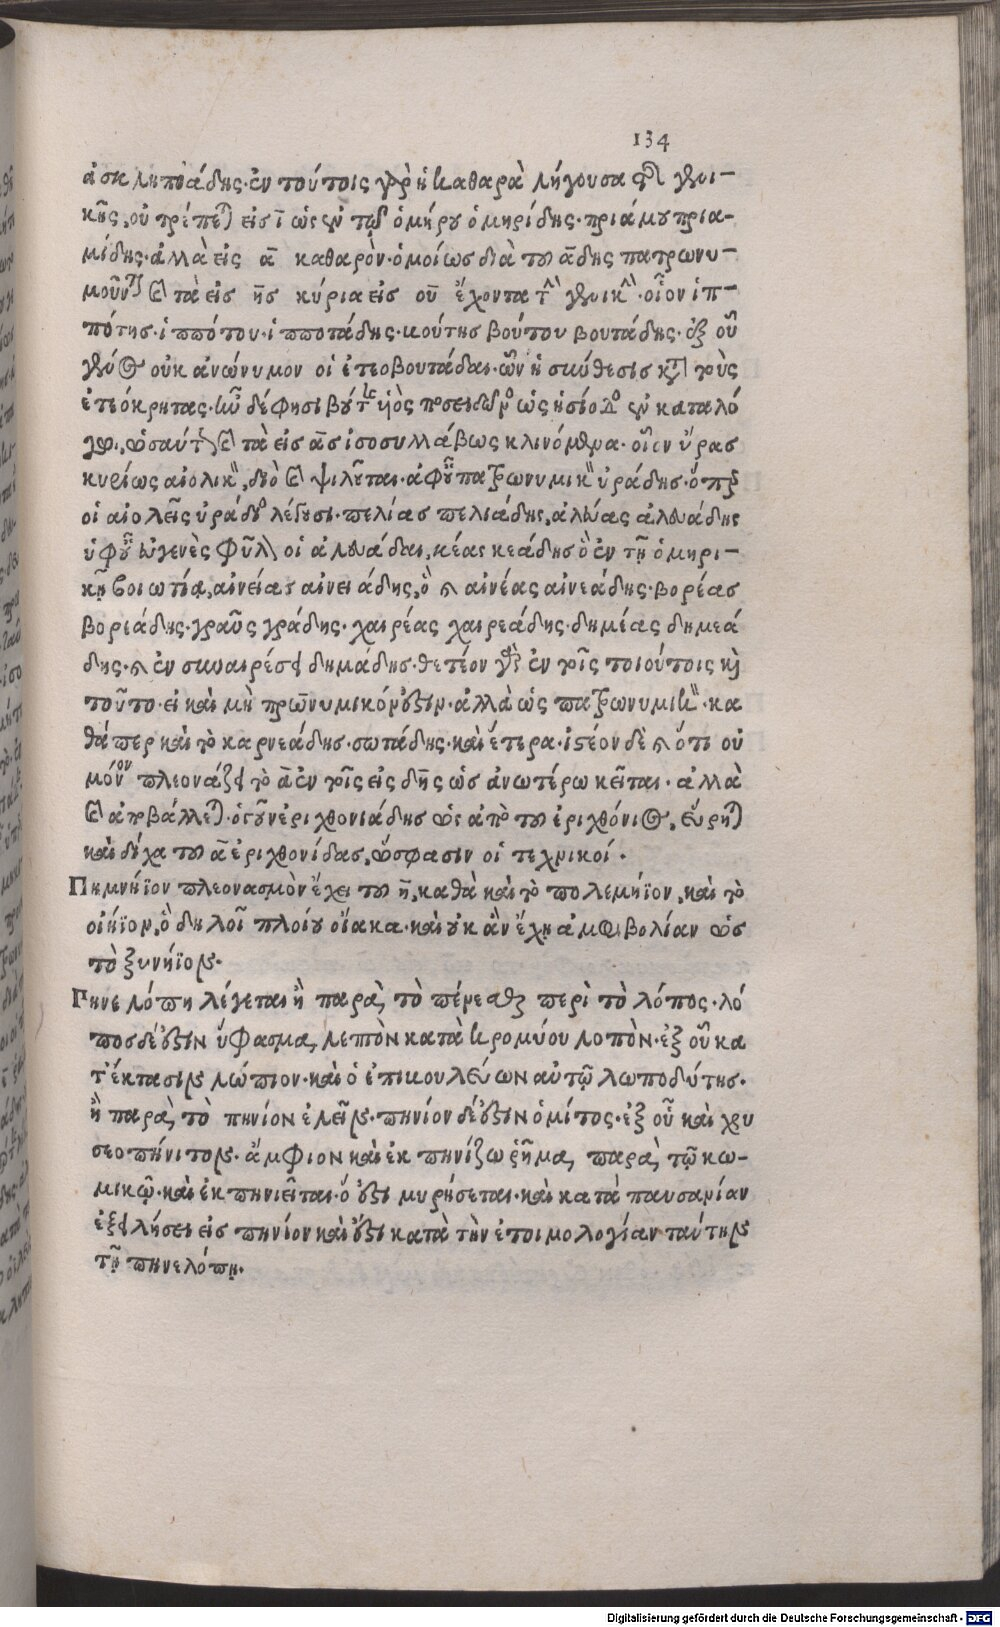 134
ἀσκληπιάδης· ἐν τούτοις γὰρ ἡ καθαρὰ λήγουσα τῆς γενι-
κῆς, οὐ τρέπεται εἰς ῑ ὡς ἐν τῷ ὁμήρου ὁμηρίδης· πριάμου πρια-
μίδης· ἀλλὰ εἰς ᾱ καθαρὸν· ὁμοίως διὰ τοῦ ᾱδης πατρωνυ-
μοῦνται καὶ τὰ εἰς ης κύρια εἰς ου ἔχοντα τὴν γενικὴν· οἷον ἱπ-
πότης· ἱππότου· ἱπποτάδης· βούτης βούτου βουτάδης· ἐξ οὗ
γένος οὐκ ἀνώνυμον οἱ ἐτεοβουτάδαι· ὧν ἡ σύνθεσις κατὰ τοὺς
ἐτεόκρητας· ἦν δέ φησι βούτης υἱὸς ποσειδῶνος ὡς ἡσίοδος ἐν καταλό
γῳ. ὡσαύτως καὶ τὰ εἰς ᾱς ἰσοσυλλάβως κλινόμενα· οἷον ὕρας
κυρίως αἰολικῶς, διὸ καὶ ψιλοῦται· ἀφ' οὗ πατρωνυμικῶς ὑράδης· ὅπερ
οἱ αἰολεῖς ὑράδιος λέγουσι· πελίας πελιάδης, ἀλώας ἀλωάδης
ὑφ' οὗ εὐγενὲς φῦλον οἱ ἀλωάδαι, κέας κεάδης ὁ ἐν τῇ ὁμηρι-
κῇ βοιωτίᾳ, αἰνείας αἰνειάδης, ὁ καὶ αἰνέας αἰνεάδης· βορέας
βορεάδης· γραῦς γράδης· χαιρέας χαιρεάδης· δημέας δημεά
δης· καὶ ἐν συναιρέσει δημάδης· θετέον γὰρ ἐν τοῖς τοιούτοις καὶ
τοῦτο· εἰ καὶ μὴ πρωνυμικόν ἐστιν· ἀλλὰ ὡς πατρωνυμικῶς· κα
θάπερ καὶ τὸ καρνεάδης· σωπάδης· καὶ ἕτερα· ἰστέον δὲ καὶ ὅτι οὐ
μόνον πλεονάζει τὸ ᾱ ἐν τοῖς εἰς δης ὡς ἀνωτέρω κεῖται· ἀλλὰ
καὶ ἀποβάλλεται· ὁ γοῦν ἐριχθονιάδης ὡς ἀπὸ τοῦ ἐριχθόνιος, εὕρηται
καὶ δίχα τοῦ ᾱ ἐριχθονίδας, ὥς φασιν οἱ τεχνικοί.
Πημνήϊον πλεονασμὸν ἔχει τοῦ η̄, καθὰ καὶ τὸ πολεμήϊον, καὶ τὸ
οἰήϊον, ὃ δηλοῖ πλοίου οἴακα· καὶ οὐκ ἂν ἔχῃ ἀμφιβολίαν ὡς
τὸ ξυνήϊον.
Πηνελόπη λέγεται ἢ παρὰ, τὸ πένεσθαι περὶ τὸ λόπος· λό
πος δέ ἐστιν ὕφασμα, λεπτὸν κατὰ κρομύου λοπὸν· ἐξ οὗ κα
τ' ἔκτασιν λώπιον· καὶ ὁ ἐπιβουλεύων αὐτῷ λωποδύτης·
ἢ παρὰ, τὸ πηνίον ἑλεῖν· πηνίον δέ ἐστιν ὁ μίτος· ἐξ οὗ καὶ χρυ
σεοπήνιτον· ἄμφιον καὶ ἐκπηνίζω ῥῆμα, παρὰ, τῷ κω-
μικῷ· καὶ ἐκπηνιεῖται· ὅ ἐστι μυρήσεται· καὶ κατὰ παυσανίαν
ἐξελήσει εἰς πηνίον καὶ ἔστι κατὰ τὴν ἐτοιμολογίαν ταύτην
τῇ πηνελόπῃ.
Digitalisierung gefördert durch die Deutsche Forschungsgemeinschaft - DFG